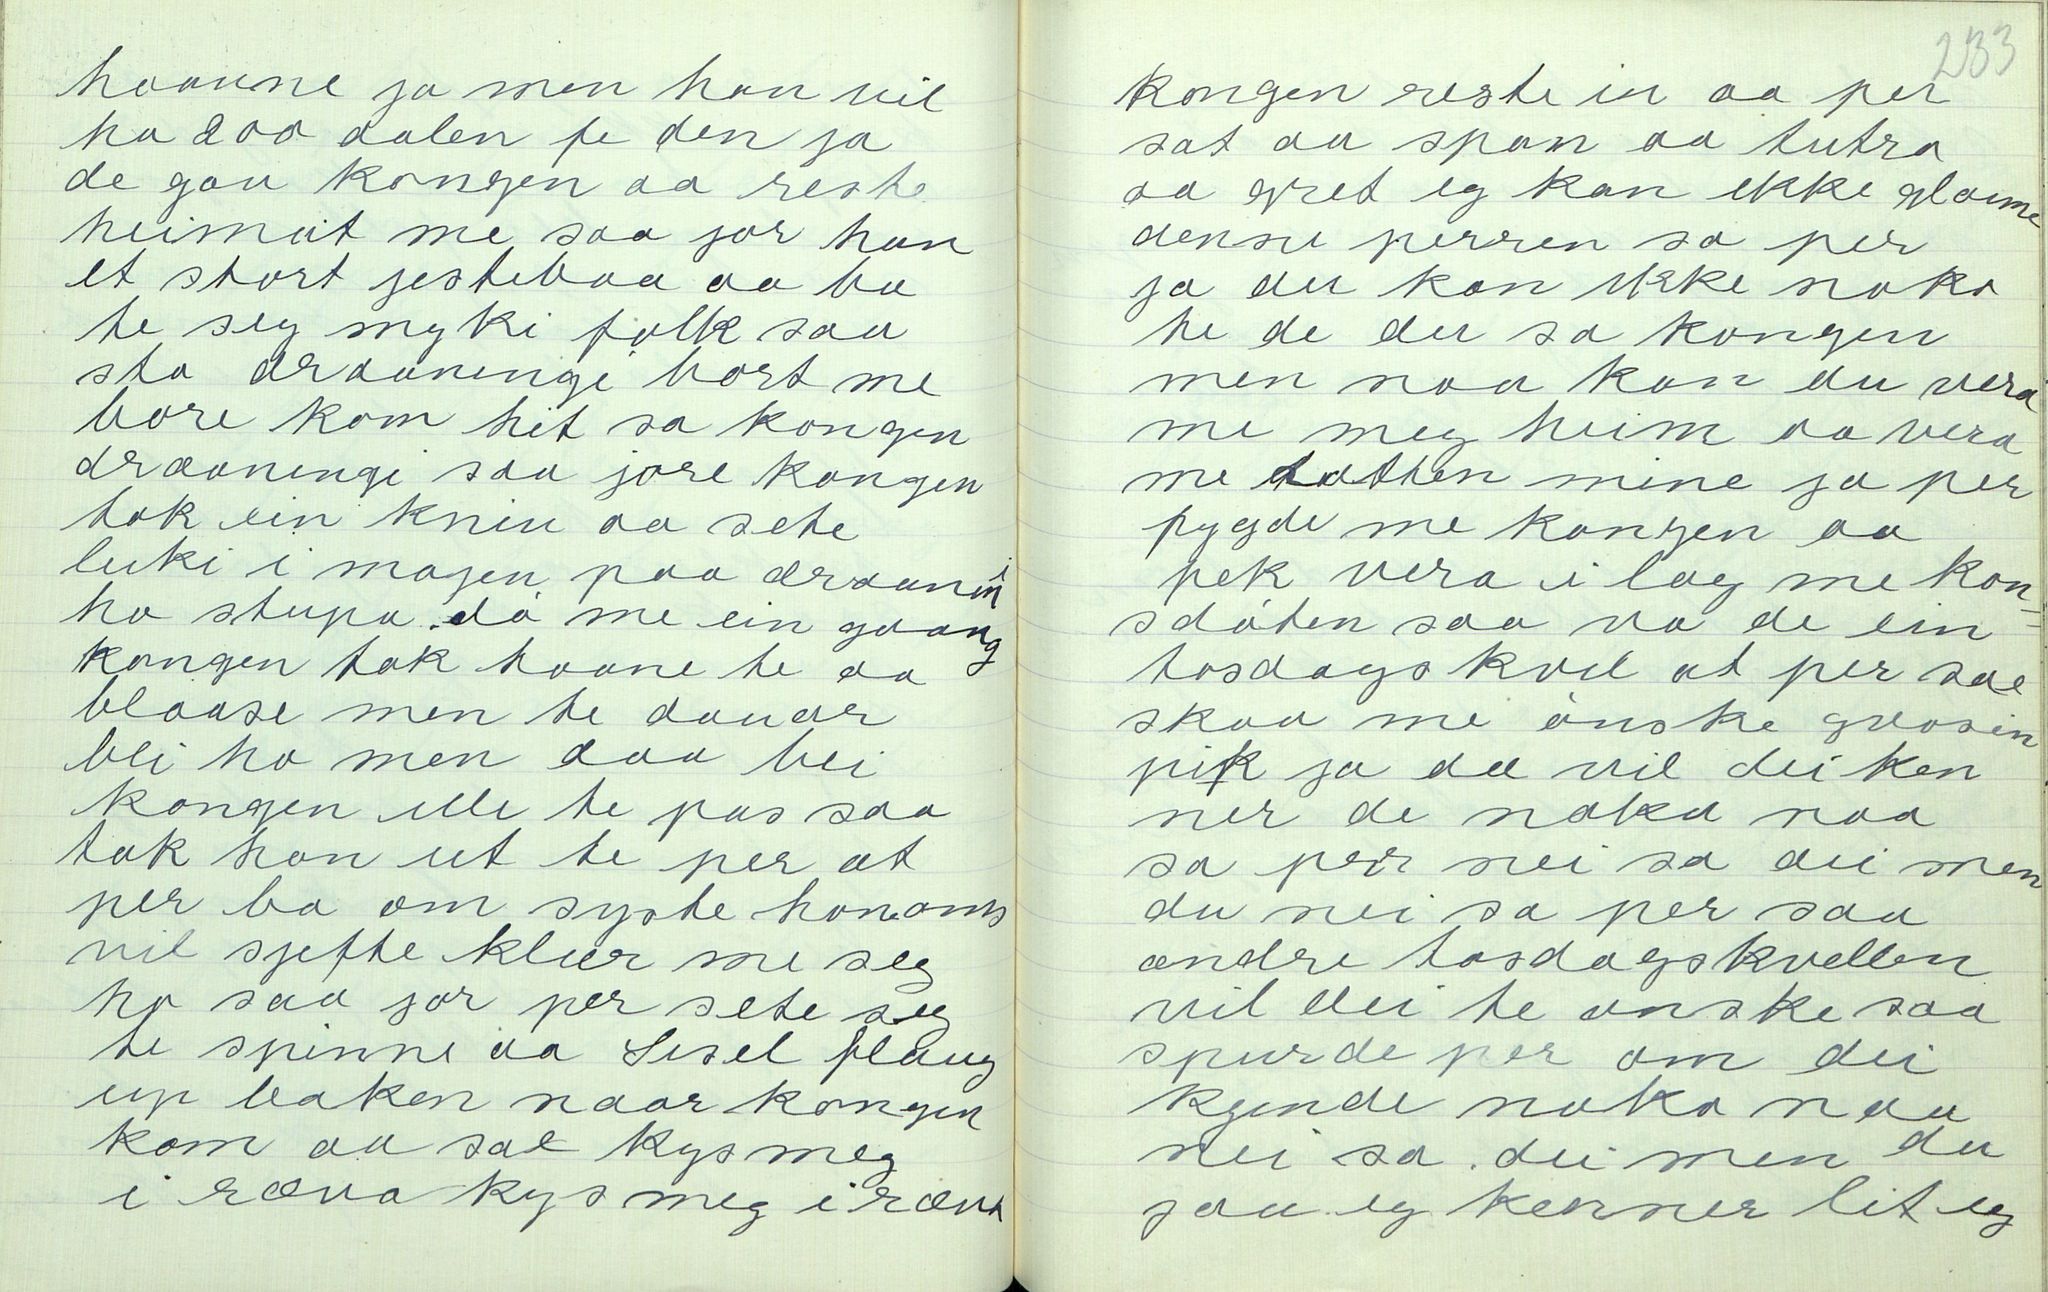 haanne ja men han vil
ha 200 dalen fe den ja
de gav kongen aa reste
heimat me saa jor han
et stort jestebaa aa ba
te seg myki folk saa
sta draaningi bort me
bore kom hit sa kongen
draaningi saa jore kongen
tok ein kniv aa sete
luki i magen paa draanini
ho stupa dó me ein gaang
kongen tok haane te aa
blaase men te dauar
blei ho men daa blei
kongen ille te pas saa
tok han ut te per at
per ba om syste honoms
vil sjefte kleer me seg
ho saa jor per sete seg
te spinne aa Sisel flaug
up baken naar kongen
kom aa sae kys meg
i ræva kys meg i ræva
233
kongen reste in aa per
sat aa span aa tutra
aa gret eg kan ikke gløime
densu perren sa per
ja du kan ikke noko
te de du sa kongen
men naa kan du vera
me meg heim aa vera
me datten mine ja per
fygde me kongen aa
fek vera i lag me kon=
sdóten saa va de ein
tosdags kvel at per sae
skaa me ònske gvosin
pik ja da vil dei ken
ner de noka naa
sa per nei sa dei men
du nei sa per saa
andre tosdagskvellen
vil dei te ønske saa
spurde per om dei
kjende noko naa
nei sa dei men du
jau eg kenner lit eg